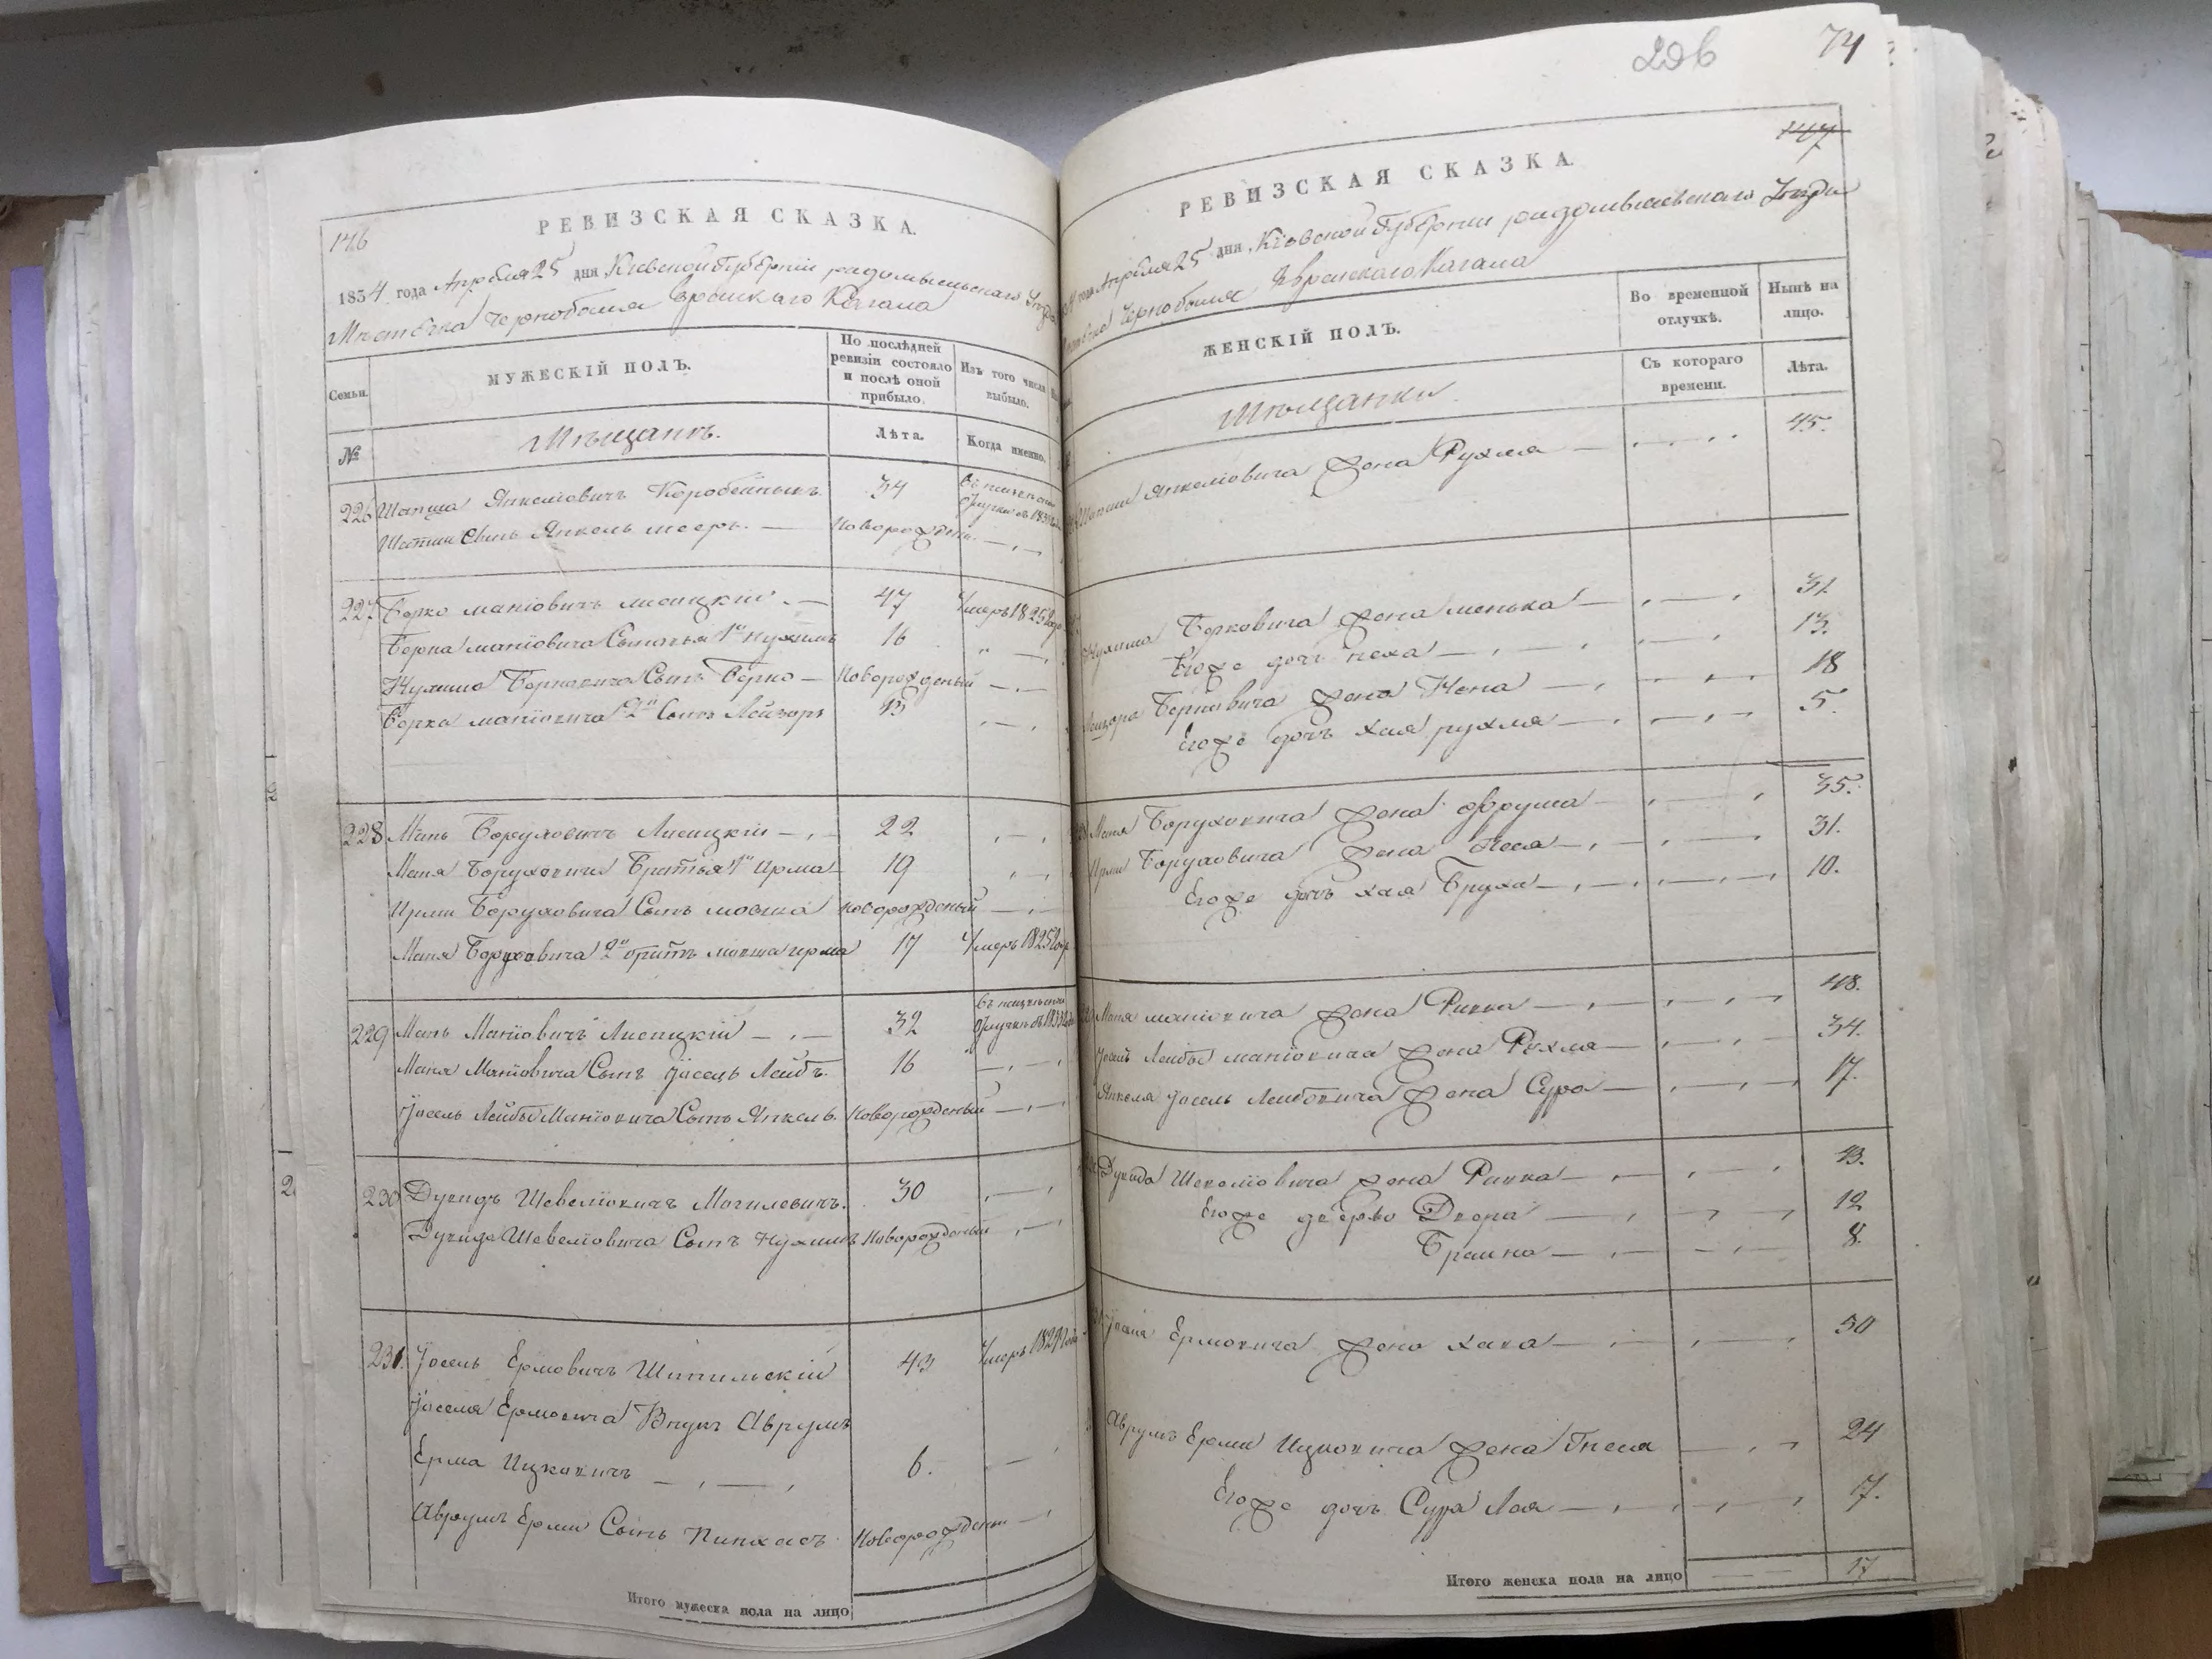 146
РЕВИЗСКАЯ СКАЗКА.
1834 года Апреля 25 дня Киевской Губернии радомысльского уезда
Местечка Чернобыля Еврейского Кагала
Семьи.
МУЖЕСКІЙ ПОЛЪ.
По послѣдней ревизіи состояло и послѣ оной прибыло.
Изъ того числа выбыло.
№
Мѣщанъ.
Лѣта.
Когда именно.
226 Шапша Янкеліовичъ Коробейныкъ 34
Шапши Сынъ Янкель мееръ. — Новорожден.
227 Борко маніовичъ лисицкій — 47 Умеръ 1825 года
Борка маніовича Сыновья 1й Нухимъ 16
Нухима Борковича Сынъ Борко — Новорожденый
Борка маніовича 2й Сынъ Лейзоръ 13
228 Мань Боруховичъ Лисицкій — 22
Маня Боруховича Братья 1й Ирма 19
Ирми Боруховича Сынъ мошка новорожденый
Маня Боруховича 2й братъ мовша ирма 17 Умеръ 1825 года
229 Мань Маніовичъ Лисицкій — 32
Маня Маніовича Сынъ Іосель Лейбъ. 16
Іосель Лейбы Маніовича Сынъ Янкель. Новорожденый
230 Дувидъ Шевеліовичъ Могилевичъ. 30
Дувида Шевеліовича Сынъ Нухимъ Новорожденый
231. Іосель Ермовичъ 43 Умеръ
Іоселя Ермовича Внукъ Аврумъ
Ерма Ицковичъ — 6.
Аврумъ Ерми Сынъ Пинхасъ Новорожден
Итого мужеска пола на лицо
206 74
147
РЕВИЗСКАЯ СКАЗКА.
года Апреля 25 дня Кіевской Губернии радомысльского Уезда
Чернобыля Еврейского Кагала
ЖЕНСКІЙ ПОЛЪ.
Во временной отлучкѣ.
Нынѣ на лицо.
Съ котораго времени.
Лѣта.
Мѣщанки
Шапши Янкеліовича жена Рухля — 45.
Нухима Борковича жена менька — 31
Егоже дочь песа — 13.
Лейзора Борковича жена Нена — 18
Егоже дочь хая рухля — 5.
Маня Боруховича жена фрума — 35.
Ирми Боруховича жена Песа — 31.
Егоже дочь хая Бруха — 10.
Маня маніовича жена Ривка — 48.
Іосель Лейбы маніовича жена Рухля — 34.
Янкеля Іосель Лейбовича жена Сура — 17.
Дувида Шевеліовича жена Ривка — 43.
Егоже дочерьи Двора — 12
Браина — 8.
Іоселя Ермовича жена хава — 50
Аврумъ Ерми Ицковича жена Песа 24
Егоже дочь Сура Лея — 17.
Итого женска пола на лицо 17